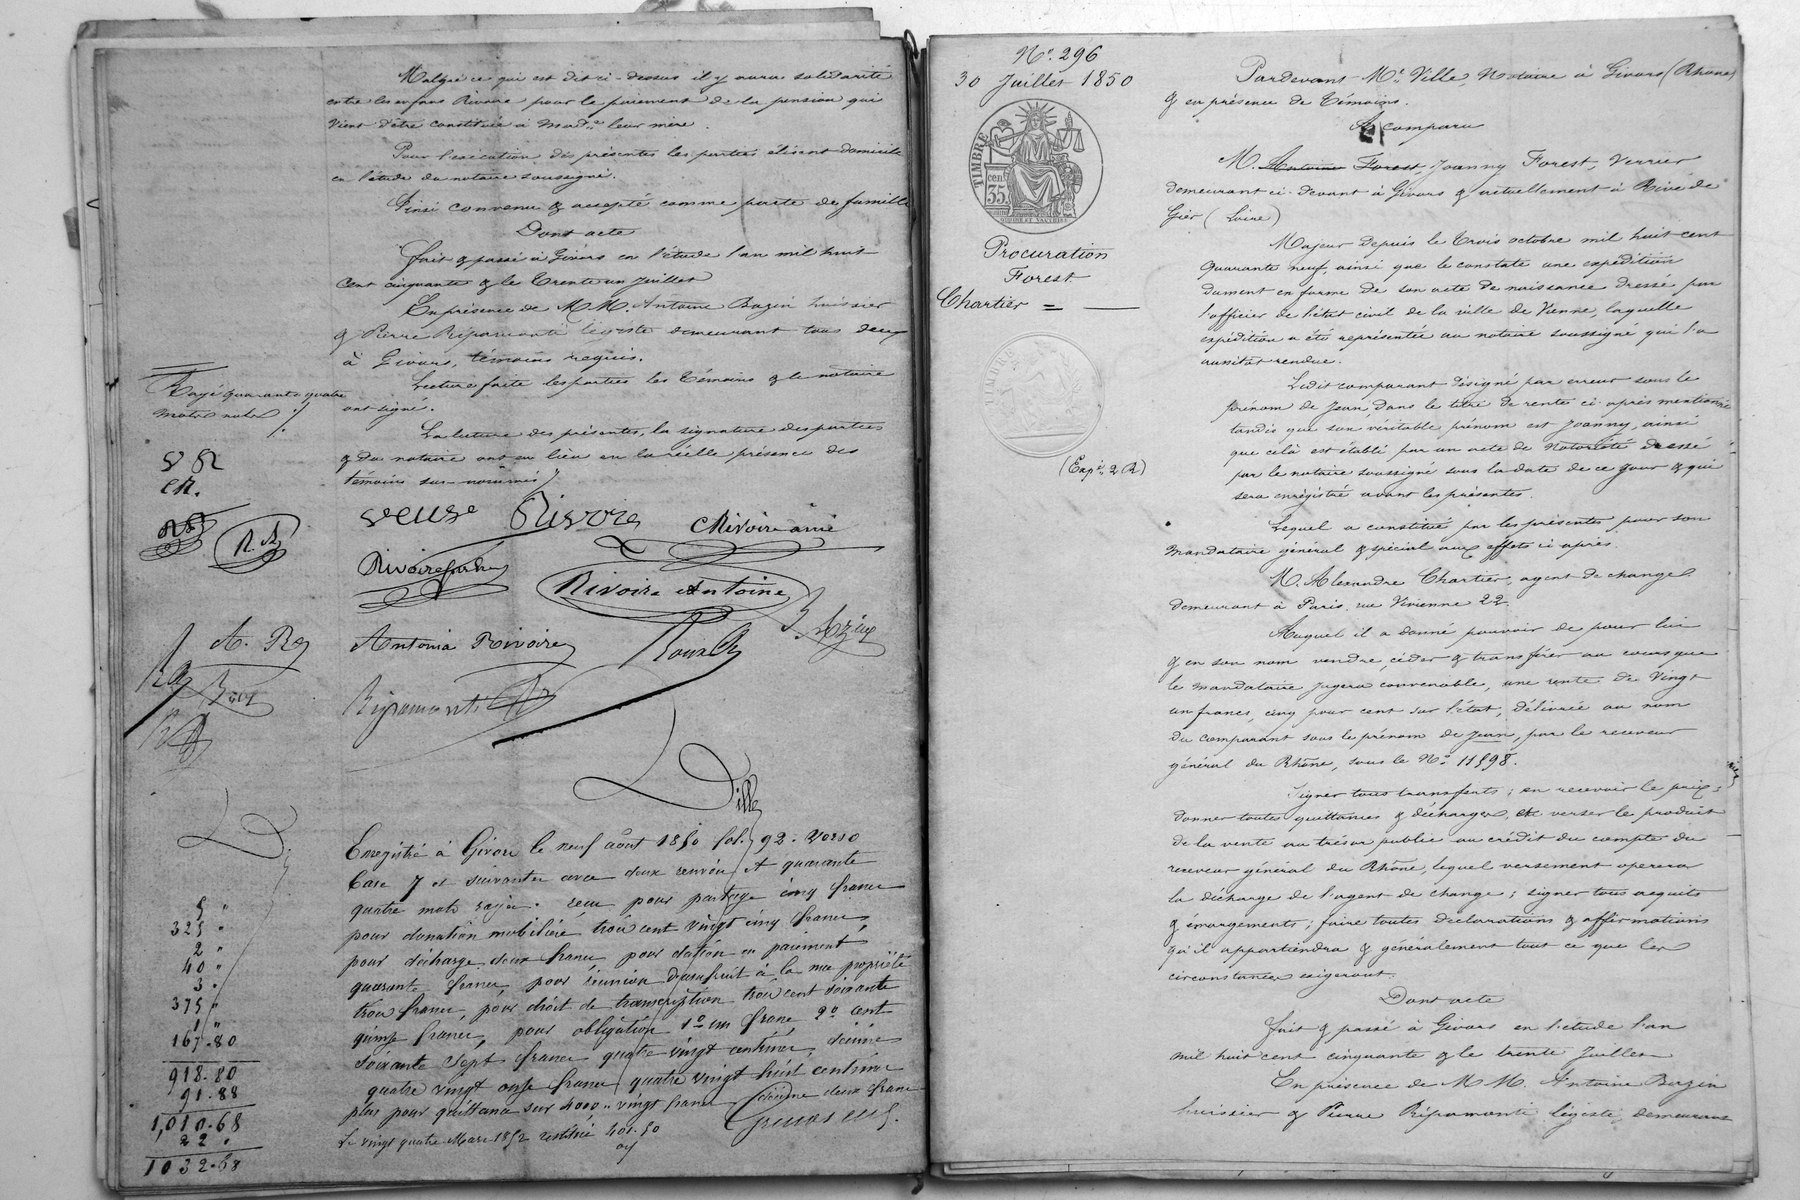 Malgré ce qui est dit ci-dessus il y aura solidarité
entre les enfans Rivoire pour le paiement de la pension qui
vient d'être constituée à Mad.e leur mère.
Pour l'exécution des présentes les parties élisent domicile
en l'étude du notaire soussigné.
Ainsi convenu & accepté comme pacte de famille
Dont acte
fait & passé à Givors en l'étude l'an mil huit
cent cinquante & le trente un Juillet
En présence de M.M. Antoine Bazin huissier
& Pierre Ripamonti légiste demeurant tous deux
à Givors, témoins requis.
Lecture faite les parties les témoins & le notaire
ont signé.
La lecture des présentes, la signature des parties
& du notaire ont eu lieu en la réelle présence des
témoins sus-nommés
Rayé quarante quatre
mots nuls
V R
CR.
R. A
A. R
veuve Rivoire
CRivoire ainé
Rivoire
Rivoire Antoine
Antonia Rivoire
Ripamonti
Ville
Enregistré à Givors le neuf août 1850 fol. 92. verso
Case 7 et suivantes avec deux renvois et quarante
quatre mots rayés. reçu pour partage cinq francs
pour donation mobilière trois cent vingt cinq francs
pour décharge deux francs, pour dation en paiement
quarante francs, pour réunion d'usufruit à la nue propriété
trois francs, pour droit de transcription trois cent soixante
quinze francs, pour obligation 1º un franc 2º cent
soixante sept francs quatre vingt centimes, décime
quatre vingt onze francs quatre vingt huit centimes
plus pour quittance sur 4000 " vingt francs décime deux francs
Le vingt quatre Mars 1852 restitué 401.50
5 "
325 "
2 "
40 "
3 "
375 "
1 "
167.80
918.80
91.88
1,010.68
22 "
1032.68
Nº 296
30 Juillet 1850
TIMBRE
cen
35
Procuration
Forest
Chartier =
(Expé. 2 R)
Pardevant Me Ville, Notaire à Givors (Rhône)
& en présence de témoins.
A comparu
M. Antoine Forest, Joanny Forest, Verrier
demeurant ci-devant à Givors & actuellement à Rive de
Gier (Loire)
Majeur depuis le trois octobre mil huit cent
quarante neuf, ainsi que le constate une expédition
dument en forme de son acte de naissance dressé par
l'officier de l'état civil de la ville de Vienne, laquelle
expédition a été représentée au notaire soussigné qui l'a
aussitôt rendue.
Ledit comparant désigné par erreur sous le
prénom de Jean, dans le titre de rente ci après mentionné
tandis que son véritable prénom est Joanny, ainsi
que cela est établi par un acte de notoriété dressé
par le notaire soussigné sous la date de ce jour & qui
sera enrégistré avant les présentes.
Lequel a constitué par les présentes pour son
mandataire général & spécial aux effets ci après
M. Alexandre Chartier, agent de change
demeurant à Paris, rue Vivienne 22.
Auquel il a donné pouvoir de pour lui
& en son nom vendre céder & transférer au cours que
le mandataire jugera convenable, une rente de vingt
un francs, cinq pour cent sur l'état, délivrée au nom
du comparant sous le prénom de Jean, par le receveur
général du Rhône, sous le Nº 11598.
Signer tous transferts; en recevoir le prix;
donner toutes quittances & décharges, verser le produit
de la vente au trésor public au crédit du compte du
receveur général du Rhône, lequel versement operera
la décharge de l'agent de change; signer tous acquits
& émargements; faire toutes déclarations & affirmations
qu'il appartiendra & généralement tout ce que les
circonstances exigeront.
Dont acte
fait & passé à Givors en l'étude l'an
mil huit cent cinquante & le trente Juillet
En présence de M.M. Antoine Bazin
huissier & Pierre Ripamonti légiste, demeurant